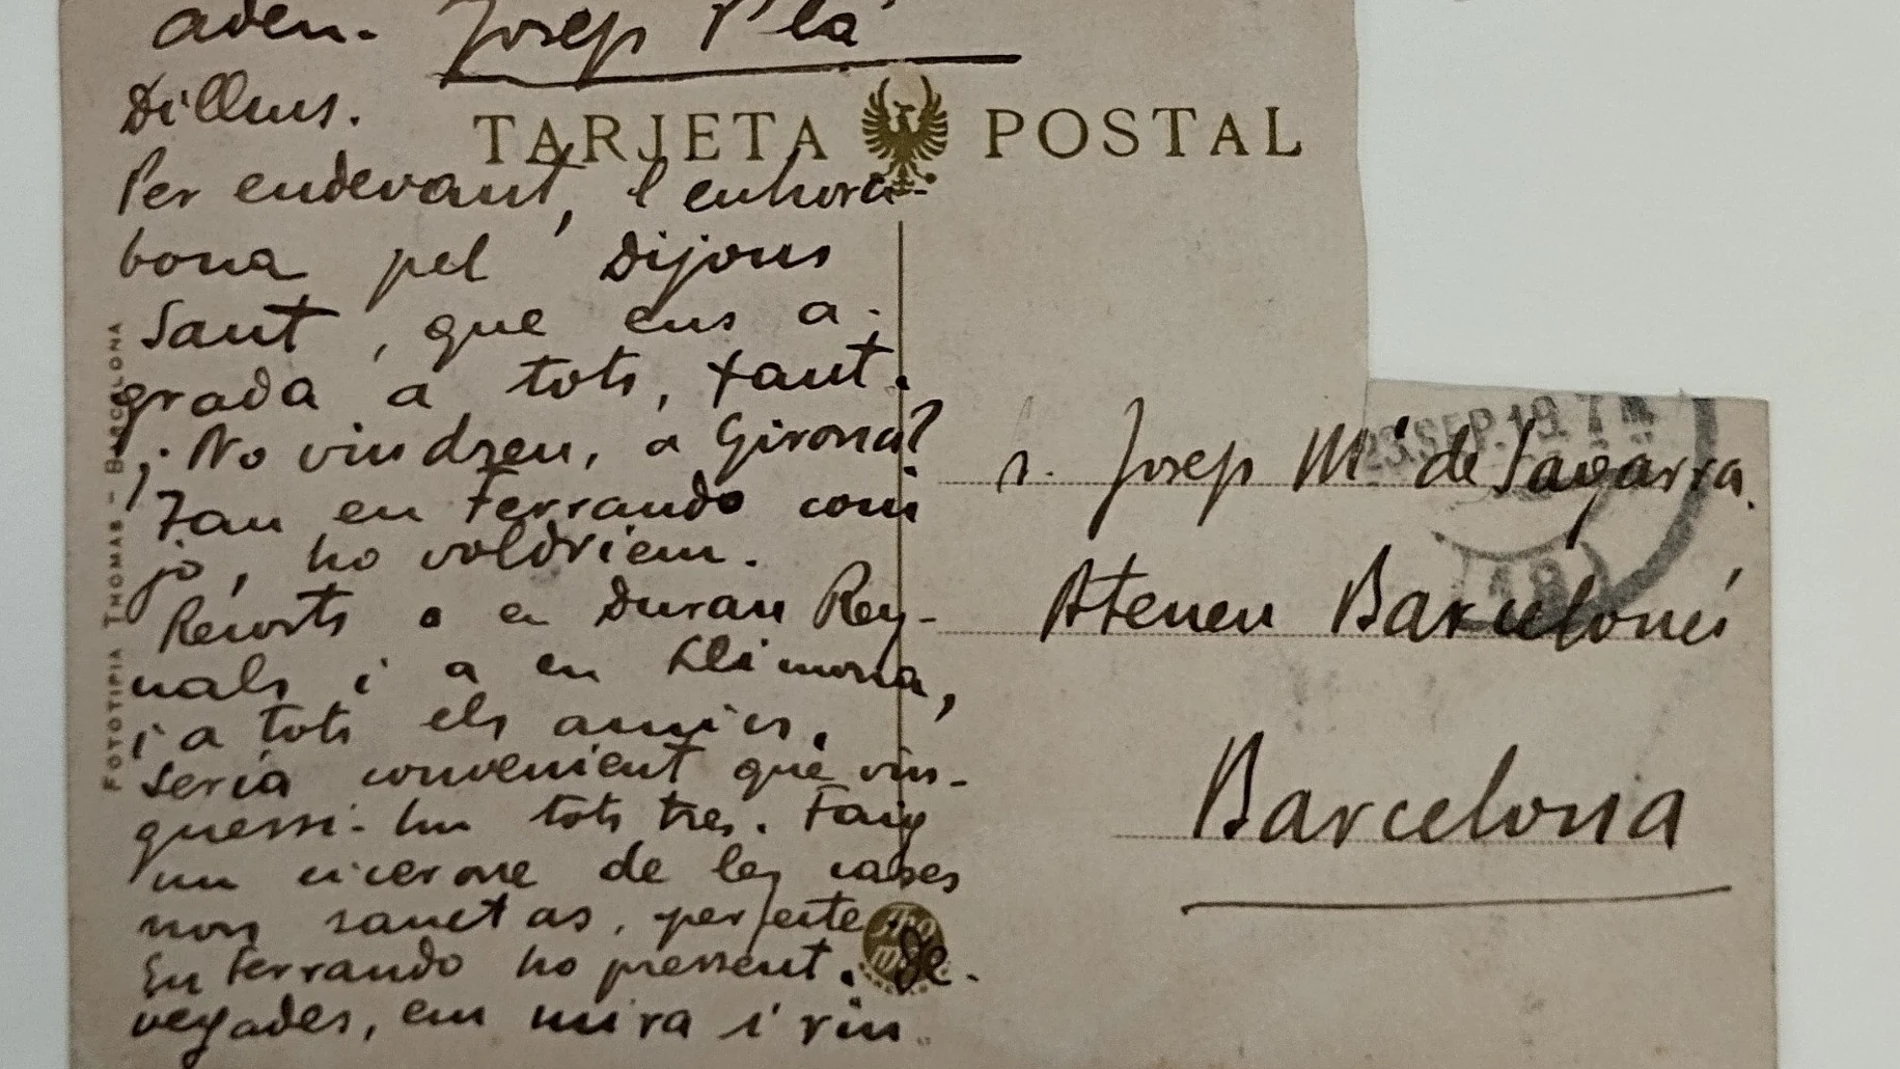 adeu. Josep Pla
Dilluns.
TARJETA POSTAL
Per endevant, l'enhora-
bona pel Dijous
Sant, que ens a-
grada a tots, tant.
¿No vindreu, a Girona?
Tan en Ferrando com
jo, ho voldriem.
Records a en Duran Rey-
nals i a en Llimona,
i a tots els amics.
Seria convenient que vin-
guessi-hu tots tres. Faig
un cicerone de les cases
non sanctas, perfecte.
En Ferrando ho pressent. De
vegades, em mira i riu.
FOTOTIPIA THOMAS - BARCELONA
23.SEP.19
S. Josep Mª de Sagarra.
Ateneu Barcelonés
Barcelona